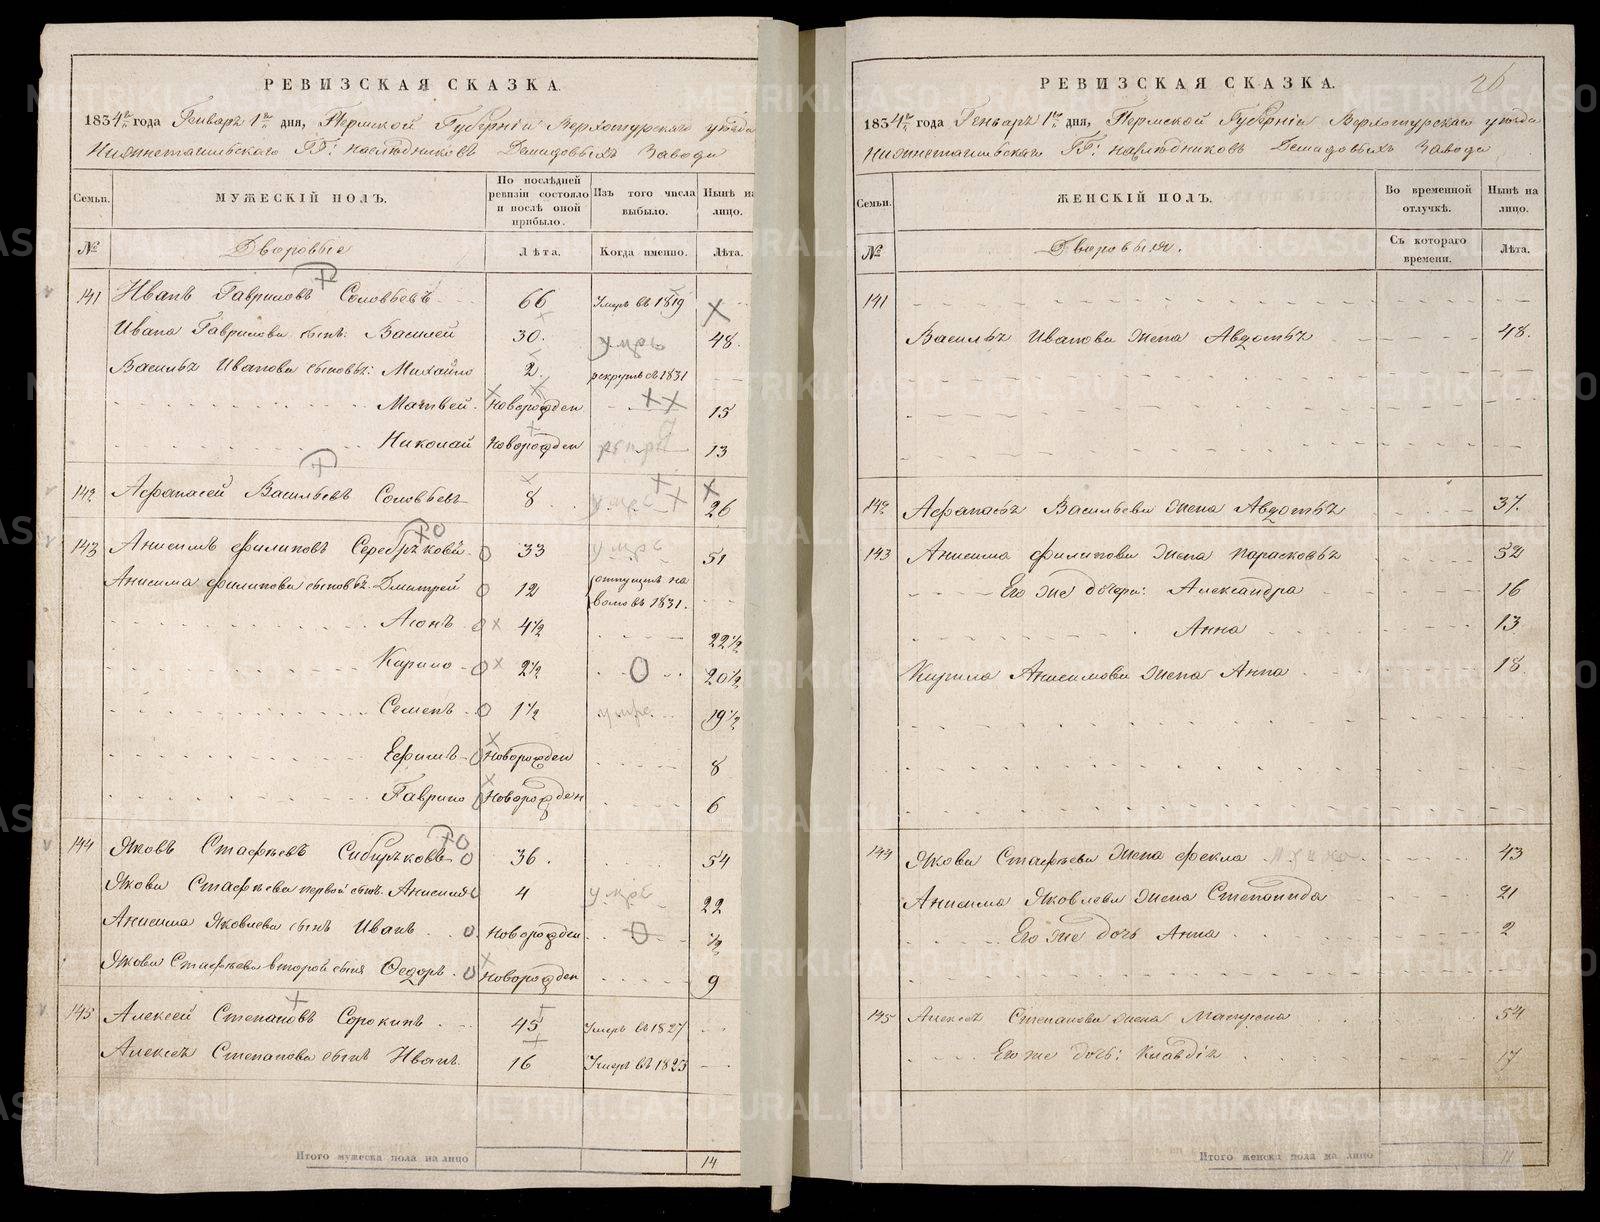 РЕВИЗСКАЯ СКАЗКА.
1834го года Генваря 1го дня, Пермской Губерніи Верхотурскаго уѣзда
Нижнетагильскаго ГГ: наслѣдниковъ Демидовыхъ Завода
Семьи.
МУЖЕСКІЙ ПОЛЪ.
По послѣдней ревизіи состояло и послѣ оной прибыло.
Изъ того числа выбыло.
Нынѣ на лицо.
№
Дворовые
Лѣта.
Когда именно.
Лѣта.
141 Иванъ Гавриловъ Соловьевъ 66 Умеръ въ 1819
Ивана Гаврилова сынъ: Василей 30. умре 48.
Василья Иванова сыновья: Михайло 2. рекрутъ въ 1831
Матвей Новорожден 15
Николай Новорожден 13
142 Афанасей Васильевъ Соловьевъ 8 умре 26
143 Анисимъ Филиповъ Серебряковъ 33 умре 51
Анисима Филипова сыновья: Дмитрей 12 отпущенъ на волю въ 1831.
Асонъ 4½ 22½
Кирило 2½ 20½
Семенъ 1½ умре 19½
Ефимъ Новорожден 8
Гаврило Новорожден 6
144 Яковъ Стафѣевъ Сибиряковъ 36. 54
Якова Стафѣева первой сынъ Анисимъ 4 умре 22
Анисима Яковлева сынъ Иванъ Новорожден ½
Якова Стафѣева второй сынъ Федоръ Новорожден 9
145 Алексей Степановъ Сорокинъ 45 Умеръ въ 1827
Алексѣя Степанова сынъ Иванъ. 16 Умеръ въ 1823
Итого мужеска пола на лицо 14
26
РЕВИЗСКАЯ СКАЗКА.
1834го года Генваря 1го дня, Пермской Губерніи Верхотурскаго уѣзда
Нижнетагильскаго ГГ: наслѣдниковъ Демидовыхъ Завода
Семьи.
ЖЕНСКІЙ ПОЛЪ.
Во временной отлучкѣ.
Нынѣ на лицо.
№
Дворовыя.
Съ котораго времени.
Лѣта.
141
Василья Иванова жена Авдотья 48.
142 Афанасья Васильева жена Авдотья 37.
143 Анисима Филипова жена Парасковья 52
Его же дочери: Александра 16
Анна 13
Кирила Анисимова жена Анна 18
144 Якова Стафѣева жена Фекла 43
Анисима Яковлева жена Степанида 21
Его же дочь Анна 2
145 Алексѣя Степанова жена Матрена 54
Его же дочь: Клавдія 17
Итого женска пола на лицо 11
METRIKI.GASO-URAL.RU